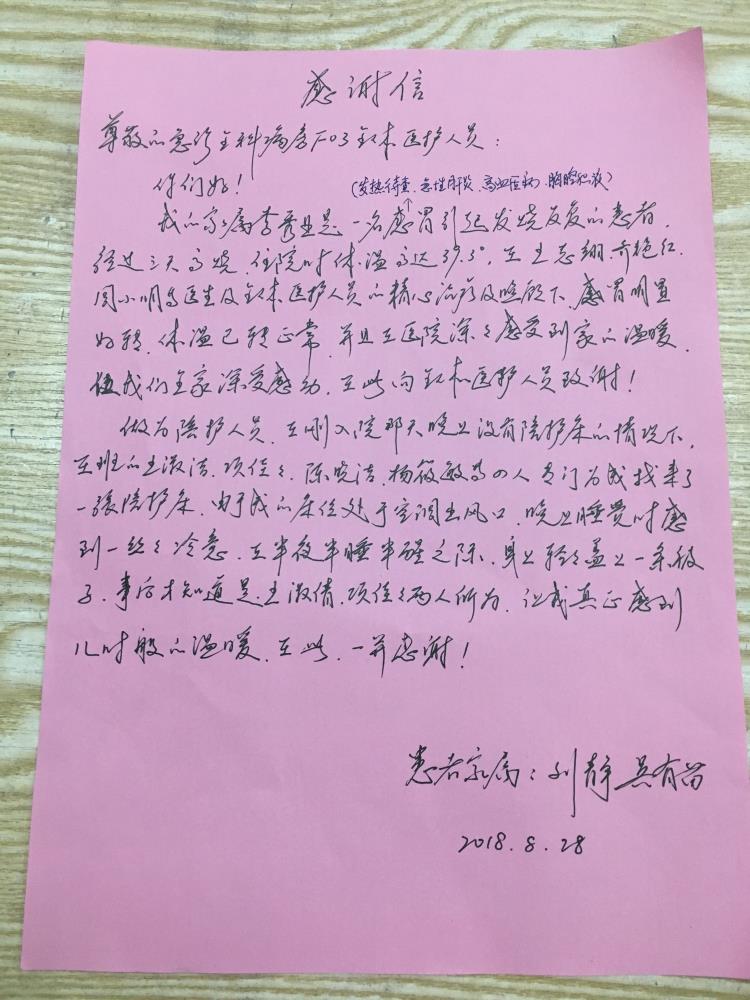 感谢信
尊敬的急诊全科病房F03全体医护人员：
你们好！
(发热待查、急性肝炎、高血压病、胸腔积液)
我的家属李秀业是一名感冒引起发烧反复的患者，
经过三天高烧，住院时体温高达39.3°，在王志翔、乔艳红、
周小明等医生及全体医护人员的精心治疗及照顾下，感冒明显
好转，体温已转正常，并且在医院深々感受到家的温暖，
使我们全家深受感动，在此向全体医护人员致谢！
做为陪护人员，在刚入院那天晚上没有陪护床的情况下，
在班的王淑洁、项佳々、陈晓洁、杨筱敏等四人专门为我找来了
一张陪护床，由于我的床位处于空调出风口，晚上睡觉时感
到一丝々冷意，在半夜半睡半醒之际，身上轻々盖上一条被
子，事后才知道是王淑倩、项佳々两人所为，让我真正感到
儿时般的温暖，在此，一并感谢！
患者家属：刘静 吴有苗
2018.8.28